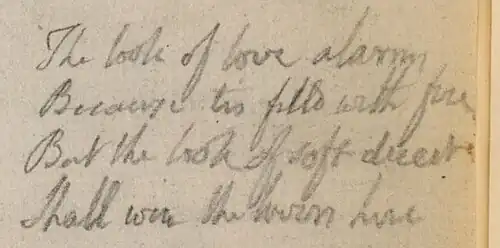 The look of love alarms
Because tis filld with fire
But the look of soft deceit
Shall win the lovers hire